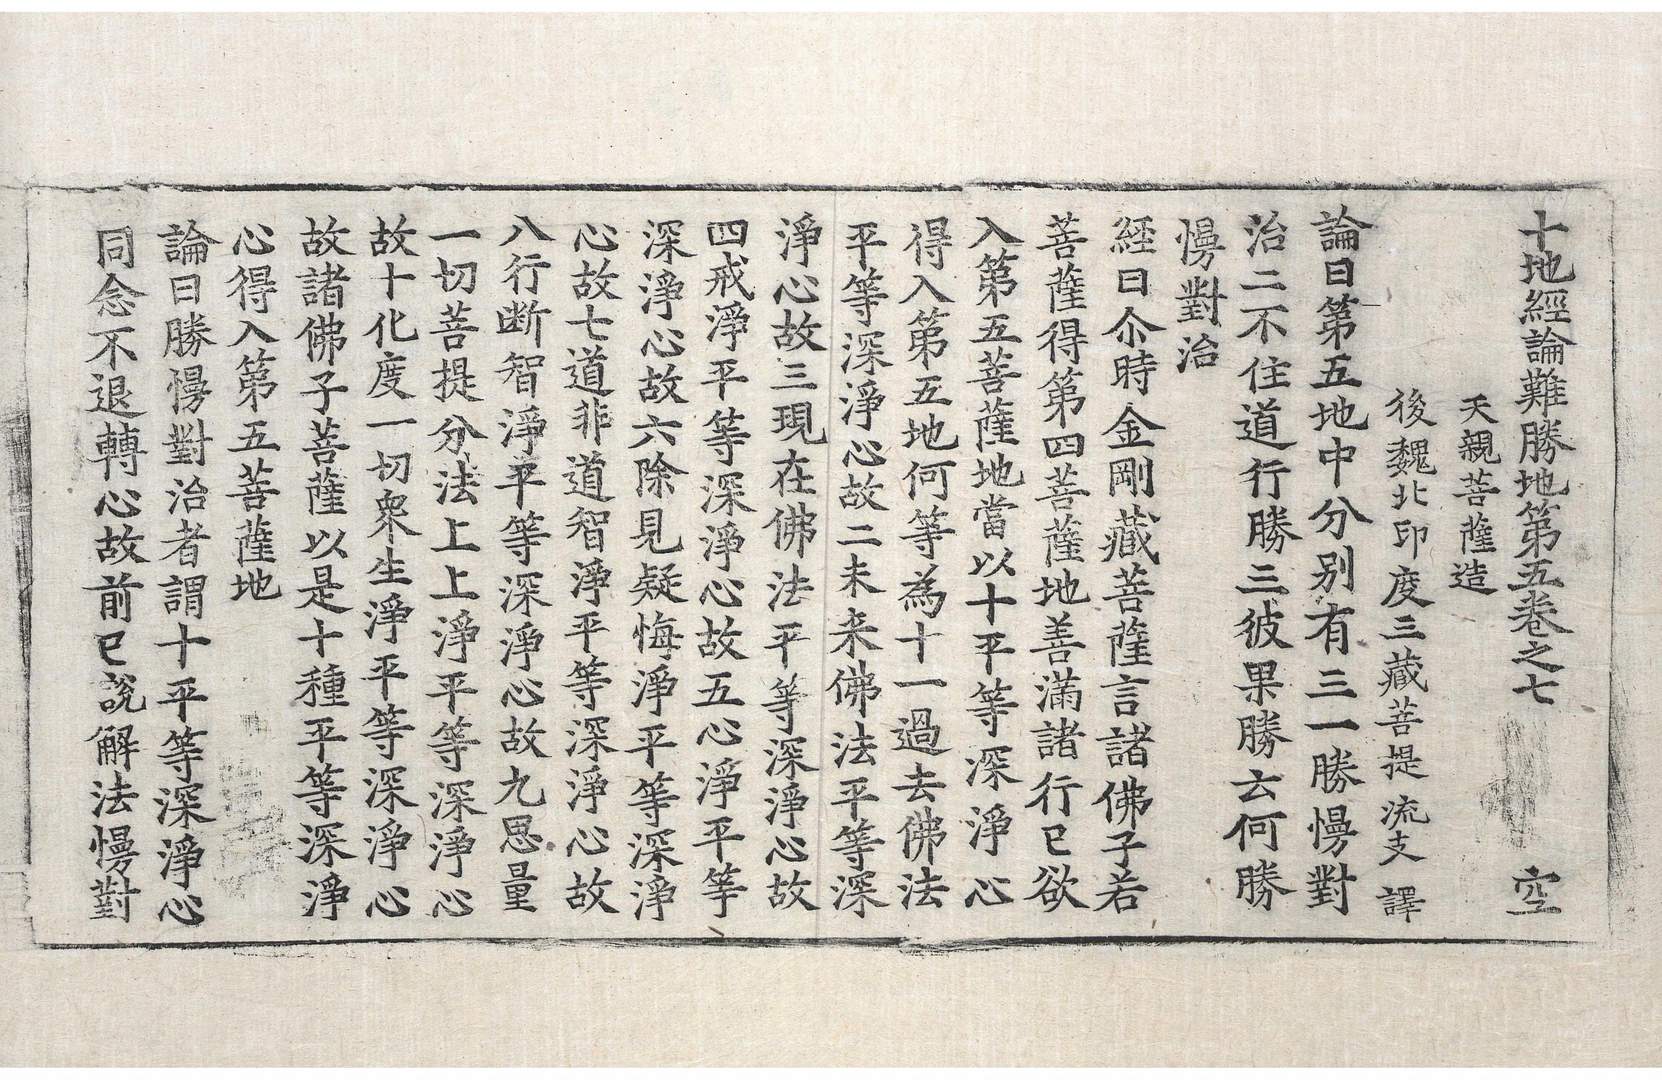 十地經論難勝地第五卷之七 空
天親菩薩造
後魏北印度三藏菩提流支譯
論曰第五地中分別有三一勝慢對
治二不住道行勝三彼果勝云何勝
慢對治
經曰尒時金剛藏菩薩言諸佛子若
菩薩得第四菩薩地善滿諸行已欲
入第五菩薩地當以十平等深淨心
得入第五地何等為十一過去佛法
平等深淨心故二未来佛法平等深
淨心故三現在佛法平等深淨心故
四戒淨平等深淨心故五心淨平等
深淨心故六除見疑悔淨平等深淨
心故七道非道智淨平等深淨心故
八行断智淨平等深淨心故九思量
一切菩提分法上上淨平等深淨心
故十化度一切衆生淨平等深淨心
故諸佛子菩薩以是十種平等深淨
心得入第五菩薩地
論曰勝慢對治者謂十平等深淨心
同念不退轉心故前已說解法慢對